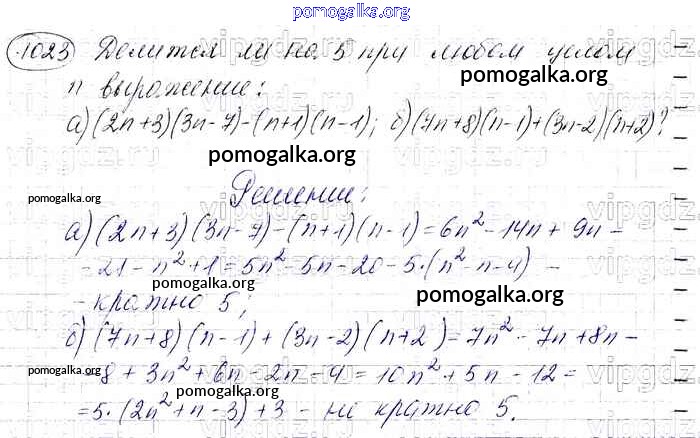 pomogalka.org
1023 Делится ли на 5 при любом целом
n выражение:
pomogalka.org
а) (2n+3)(3n-7)-(n+1)(n-1); б) (7n+8)(n-1)+(3n-2)(n+2)?
pomogalka.org
vipgdz.ru
pomogalka.org
Решение:
pomogalka.org
а) (2n+3)(3n-7)-(n+1)(n-1)=6n²-14n+9n-
-21-n²+1=5n²-5n-20-5·(n²-n-4) -
- кратно 5;
pomogalka.org
pomogalka.org
б) (7n+8)(n-1)+(3n-2)(n+2)=7n²-7n+8n-
-8+3n²+6n-2n-4=10n²+5n-12=
pomogalka.org
pomogalka.org
=5·(2n²+n-3)+3 - не кратно 5.